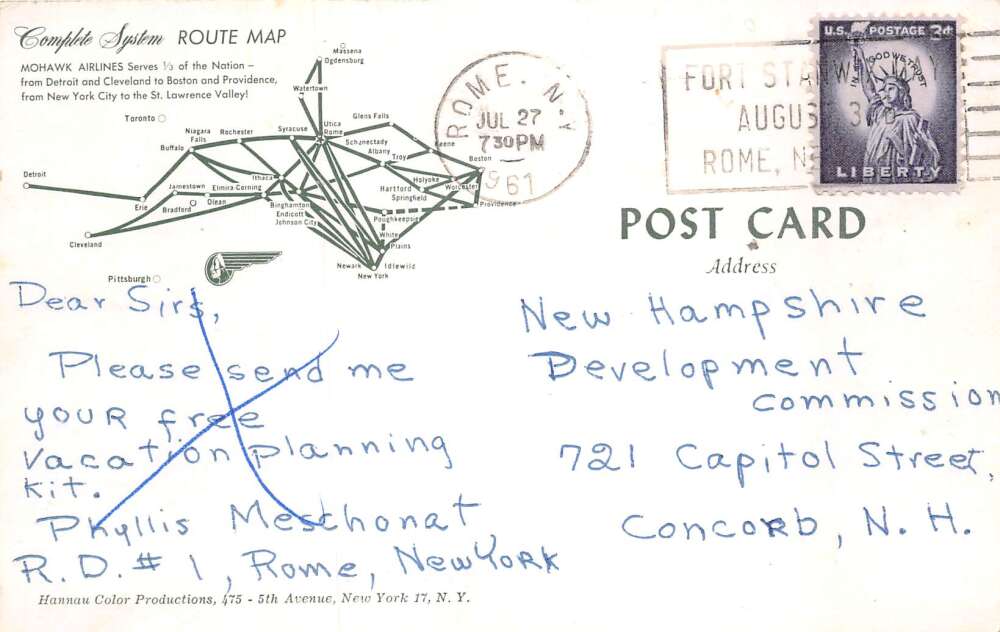 Complete System ROUTE MAP
MOHAWK AIRLINES Serves 1/3 of the Nation –
from Detroit and Cleveland to Boston and Providence,
from New York City to the St. Lawrence Valley!
Massena
Ogdensburg
Watertown
Toronto
Niagara
Falls
Buffalo
Rochester
Syracuse
Utica
Rome
Glens Falls
Schenectady
Albany
Troy
Keene
Boston
Detroit
Erie
Jamestown
Bradford
Olean
Elmira Corning
Ithaca
Binghamton
Endicott
Johnson City
Holyoke
Worcester
Hartford
Springfield
Providence
Poughkeepsie
White
Plains
Cleveland
Pittsburgh
Newark
Idlewild
New York
ROME, N.Y
JUL 27
7 30 PM
1961
FORT STANW
AUGUS 3
ROME, N
U.S. POSTAGE 3¢
IN GOD WE TRUST
LIBERTY
POST CARD
Address
Dear Sirs,
Please send me
your free
vacation planning
kit.
Phyllis Meschonat
R.D. # 1, Rome, New York
New Hampshire
Development
commission
721 Capitol Street,
Concord, N. H.
Hannau Color Productions, 475 - 5th Avenue, New York 17, N. Y.